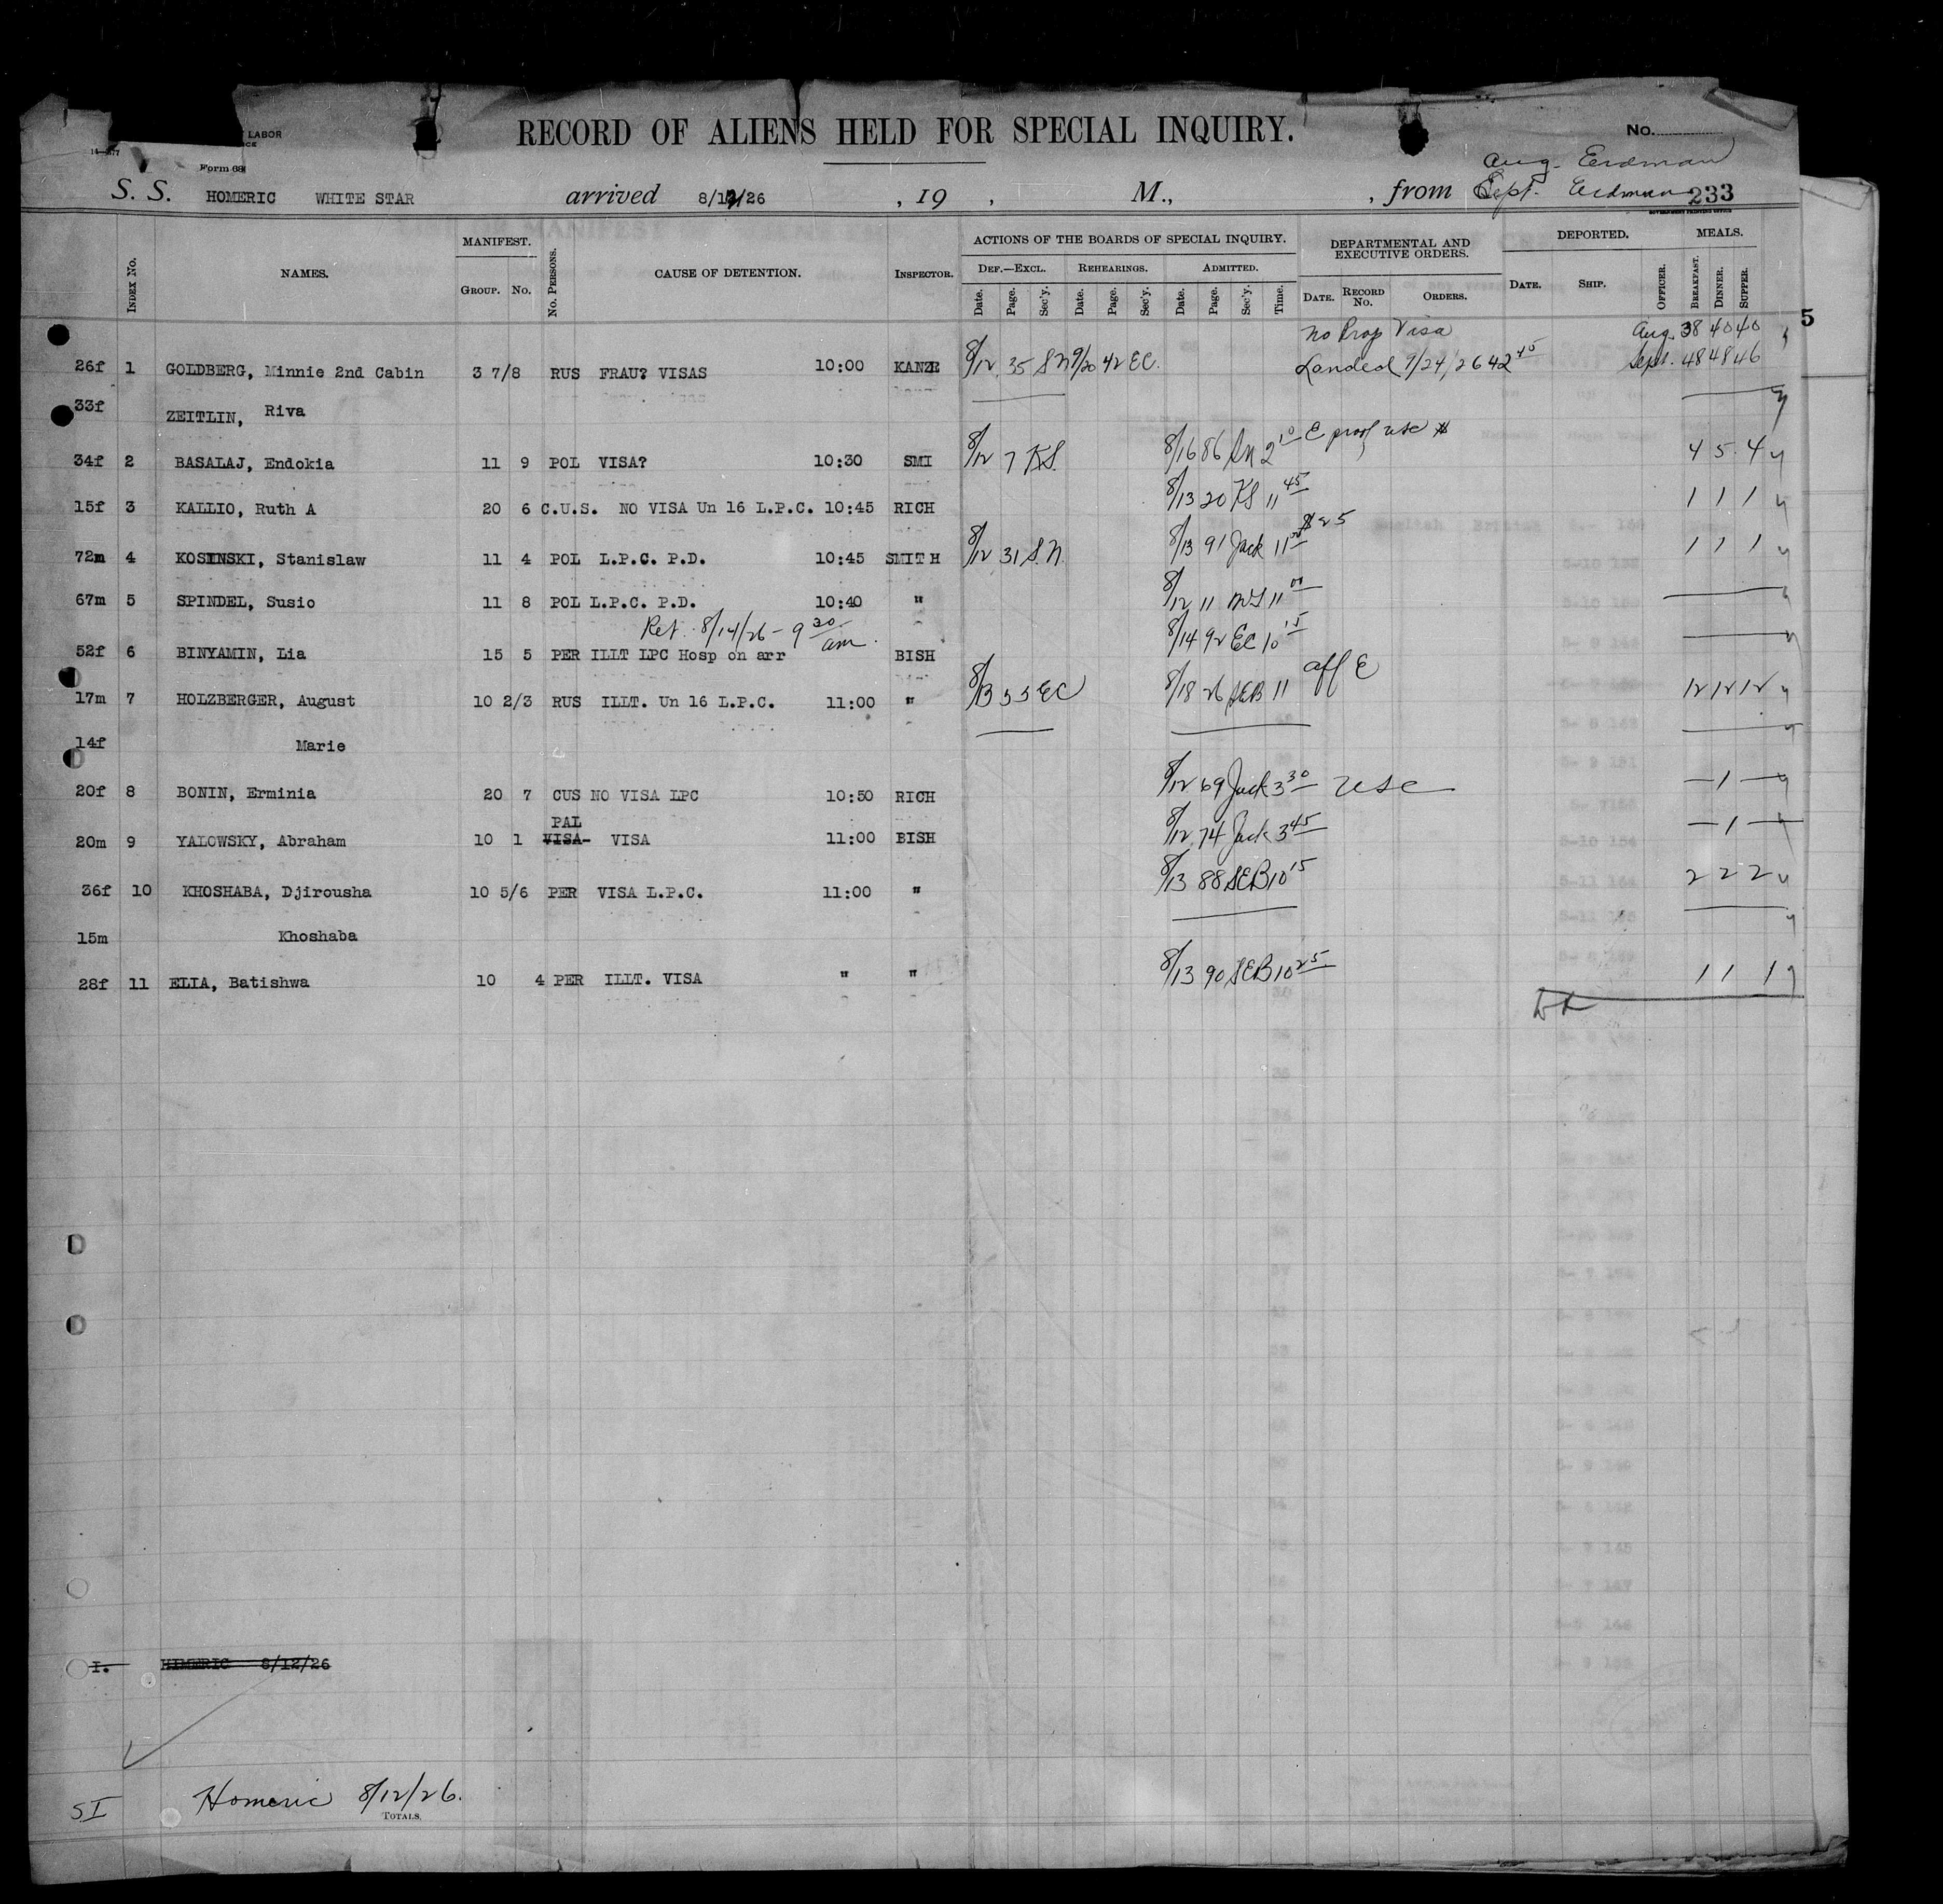 LABOR
Form 681
RECORD OF ALIENS HELD FOR SPECIAL INQUIRY.
No.
Aug. Erdman
S. S. HOMERIC WHITE STAR arrived 8/12/26 , 19 , M., , from Sept. Erdman 233
GOVERNMENT PRINTING OFFICE
INDEX No. NAMES. MANIFEST. GROUP. No. No. PERSONS. CAUSE OF DETENTION. INSPECTOR. ACTIONS OF THE BOARDS OF SPECIAL INQUIRY. DEPARTMENTAL AND EXECUTIVE ORDERS. DEPORTED. MEALS.
DEF.—EXCL. REHEARINGS. ADMITTED.
Date. Page. Sec'y. Date. Page. Sec'y. Date. Page. Sec'y. Time. DATE. RECORD No. ORDERS. DATE. SHIP. OFFICER. BREAKFAST. DINNER. SUPPER.
5
No Prop Visa Aug. 38 40 40
26f 1 GOLDBERG, Minnie 2nd Cabin 3 7/8 RUS FRAU? VISAS 10:00 KANZE 8/12 35 SN 9/20 42 EC. Landed 9/24/26 42 45 Sept. 48 48 46
33f ZEITLIN, Riva
34f 2 BASALAJ, Endokia 11 9 POL VISA? 10:30 SMI 8/12 7 KS. 8/16 86 SN 2 10 E proof USC $ 4 5 4
15f 3 KALLIO, Ruth A 20 6 C.U.S. NO VISA Un 16 L.P.C. 10:45 RICH 8/13 20 KS 11 45 1 1 1
$25
72m 4 KOSINSKI, Stanislaw 11 4 POL L.P.C. P.D. 10:45 SMITH 8/12 31 S.N. 8/13 91 Jack 11 00 1 1 1
67m 5 SPINDEL, Susio 11 8 POL L.P.C. P.D. 10:40 " 8/12 11 11 00
Ret. 8/14/26 - 9 30 am. 8/14 92 EC 10 15
52f 6 BINYAMIN, Lia 15 5 PER ILLT LPC Hosp on arr BISH
17m 7 HOLZBERGER, August 10 2/3 RUS ILLT. Un 16 L.P.C. 11:00 " 8/13 55 EC 8/18 26 SEB 11 aff E 12 12 12
14f Marie
20f 8 BONIN, Erminia 20 7 CUS NO VISA LPC 10:50 RICH 8/12 69 Jack 3 30 USC — 1 —
PAL
20m 9 YALOWSKY, Abraham 10 1 VISA- VISA 11:00 BISH 8/12 74 Jack 3 45 — 1 —
36f 10 KHOSHABA, Djirousha 10 5/6 PER VISA L.P.C. 11:00 " 8/13 88 SEB 10 15 2 2 2
15m Khoshaba
28f 11 ELIA, Batishwa 10 4 PER ILLT. VISA " " 8/13 90 SEB 10 25 1 1 1
I. HIMERIC 8/12/26
SI Homeric 8/12/26.
TOTALS.